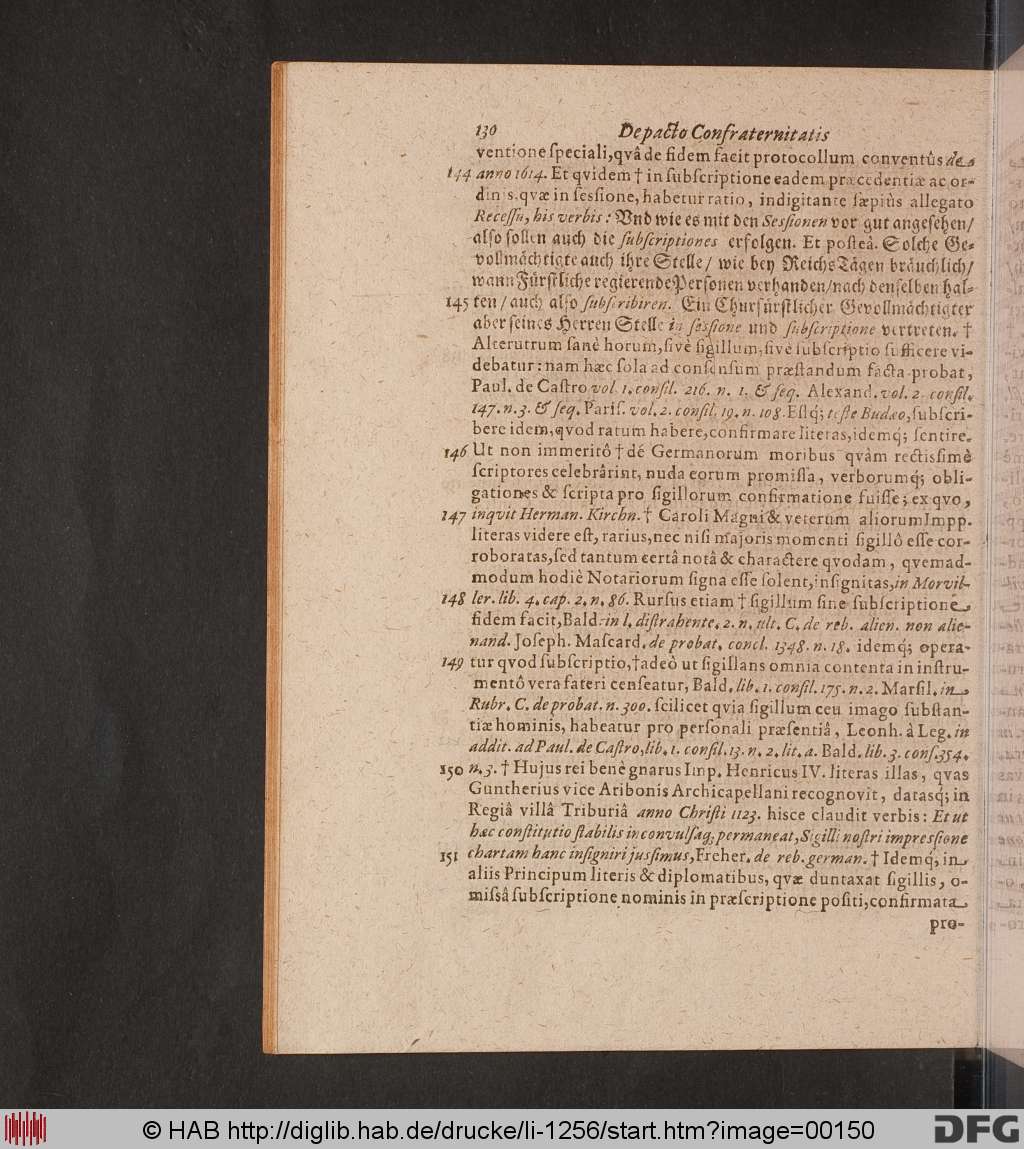 130 De pacto Confraternitatis
ventione ſpeciali, qvâ de fidem facit protocollum conventûs de
144 anno 1614. Et qvidem † in ſubſcriptione eadem præcedentiæ ac or-
dinis, qvæ in ſeſsione, habetur ratio, indigitante ſæpiùs allegato
Receſſu, his verbis: Vnd wie es mit den Seſsionen vor gut angeſehen/
alſo ſollen auch die ſubſcriptiones erfolgen. Et poſteà. Solche Ge-
vollmächtigte auch ihre Stelle/ wie bey ReichsTägen bräuchlich/
wann Fürſtliche regierende Perſonen verhanden/ nach denſelben hal-
145 ten/ auch alſo ſubſcribiren. Ein Churfürſtlicher Gevollmächtigter
aber ſeines Herren Stelle in ſeſsione und ſubſcriptione vertreten. †
Alterutrum ſanè horum, ſivè ſigillum, ſive ſubſcriptio ſufficere vi-
debatur: nam hæc ſola ad conſenſum præſtandum facta probat,
Paul. de Caſtro vol. 1. conſil. 216. n. 1. & ſeq. Alexand. vol. 2. conſil.
147. n. 3. & ſeq. Pariſ. vol. 2. conſil. 19. n. 108. Eſtq; teſte Budæo, ſubſcri-
bere idem, qvod ratum habere, confirmare literas, idemq; ſentire.
146 Ut non immeritô † dé Germanorum moribus qvàm rectiſſimè
ſcriptores celebrârint, nuda eorum promiſſa, verborumq; obli-
gationes & ſcripta pro ſigillorum confirmatione fuiſſe; ex qvo,
147 inqvit Herman. Kirchn. † Caroli Magni & veterum aliorum Impp.
literas videre eſt, rarius, nec niſi majoris momenti ſigillô eſſe cor-
roboratas, ſed tantum certâ notâ & charactere qvodam, qvemad-
modum hodiè Notariorum ſigna eſſe ſolent, inſignitas, in Morvil-
148 ler. lib. 4. cap. 2. n. 86. Rurſus etiam † ſigillum ſine ſubſcriptione
fidem facit, Bald. in l. diſtrahente. 2. n. ult. C. de reb. alien. non alie-
nand. Joſeph. Maſcard. de probat. concl. 1348. n. 18. idemq; opera-
149 tur qvod ſubſcriptio, † adeò ut ſigillans omnia contenta in inſtru-
mentô vera fateri cenſeatur, Bald. lib. 1. conſil. 175. n. 2. Marſil. in
Rubr. C. de probat. n. 300. ſcilicet qvia ſigillum ceu imago ſubſtan-
tiæ hominis, habeatur pro perſonali præſentiâ, Leonh. à Leg. in
addit. ad Paul. de Caſtro, lib. 1. conſil. 13. n. 2. lit. a. Bald. lib. 3. conſ. 354.
150 n. 3. † Hujus rei benè gnarus Imp. Henricus IV. literas illas, qvas
Guntherius vice Aribonis Archicapellani recognovit, datasq; in
Regiâ villâ Triburiâ anno Chriſti 1123. hisce claudit verbis: Et ut
hæc conſtitutio ſtabilis inconvulſaq; permaneat, Sigilli noſtri impreſsione
151 chartam hanc inſigniri juſsimus, Freher. de reb. german. † Idemq; in
aliis Principum literis & diplomatibus, qvæ duntaxat ſigillis, o-
miſsâ ſubſcriptione nominis in præſcriptione poſiti, confirmata
pro-
© HAB http://diglib.hab.de/drucke/li-1256/start.htm?image=00150
DFG